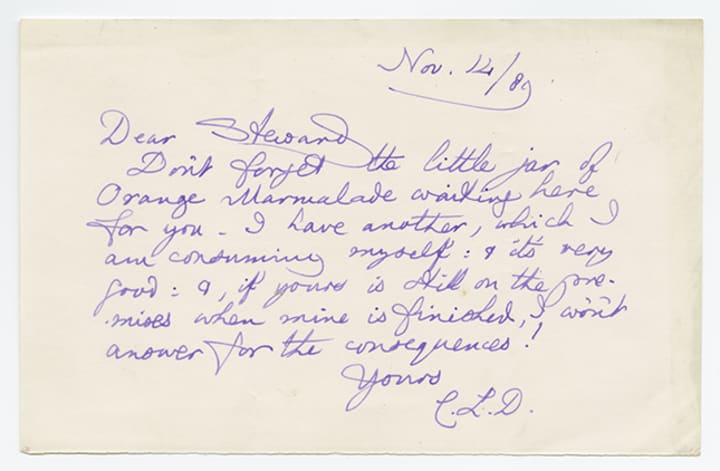 Nov. 14/89.
Dear Steward
Don't forget the little jar of
Orange Marmalade waiting here
for you - I have another, which I
am consuming myself: & it's very
good: &, if yours is still on the pre-
-mises when mine is finished, I wo'n't
answer for the consequences!
Yours
C.L.D.